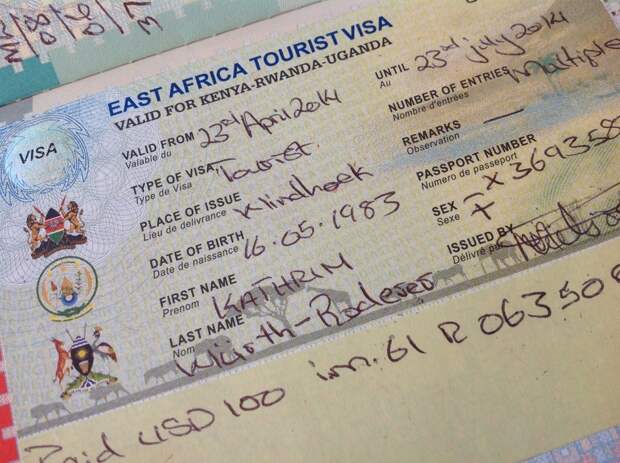 EAST AFRICA TOURIST VISA
VALID FOR KENYA-RWANDA-UGANDA
VISA
VALID FROM 23rd April 2014
Valable du
UNTIL 23rd July 2014
Au
TYPE OF VISA Tourist
Type de Visa
NUMBER OF ENTRIES Multiple
Nombre d'entrées
PLACE OF ISSUE Windhoek
Lieu de delivrance
REMARKS
Observation
DATE OF BIRTH 16.05.1983
Date de naissance
PASSPORT NUMBER
Numero de passeport
FIRST NAME KATHRIN
Prenom
SEX F
Sexe
LAST NAME
Nom
ISSUED BY
Délivré par
Paid USD 100 im. 61 R 063508